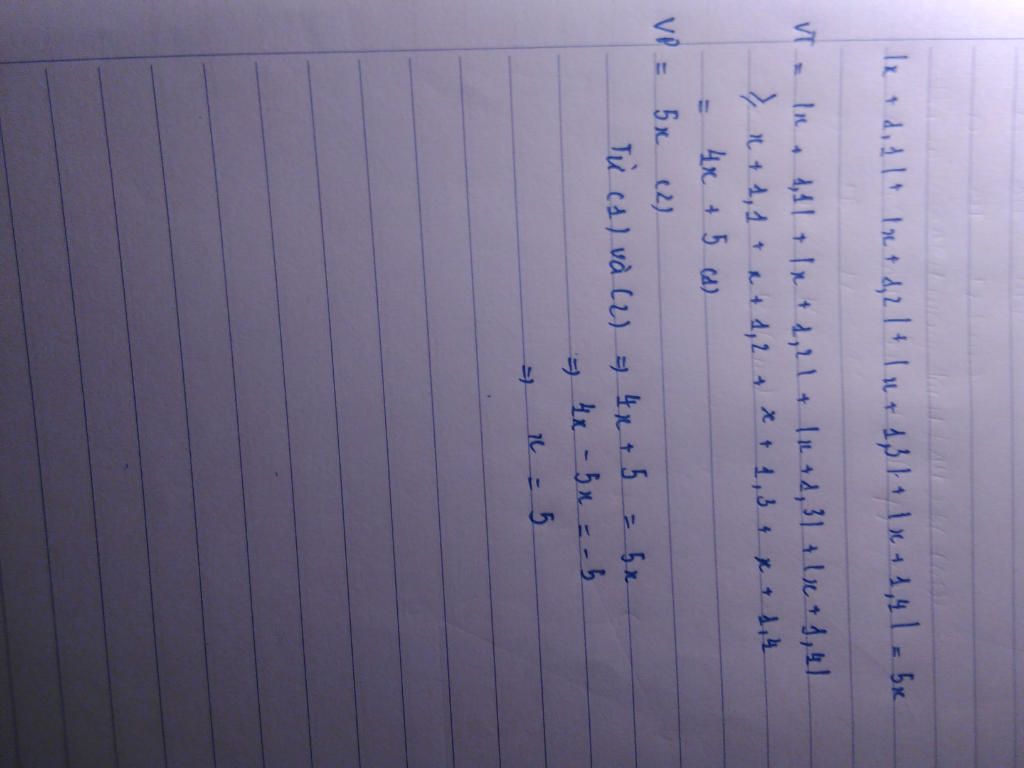 |x + 1,1| + |x + 1,2| + |x + 1,3| + |x + 1,4| = 5x
VT = |x + 1,1| + |x + 1,2| + |x + 1,3| + |x + 1,4|
⩾ x + 1,1 + x + 1,2 + x + 1,3 + x + 1,4
= 4x + 5 (1)
VP = 5x (2)
Từ (1) và (2) => 4x + 5 = 5x
=> 4x - 5x = -5
=> x = 5